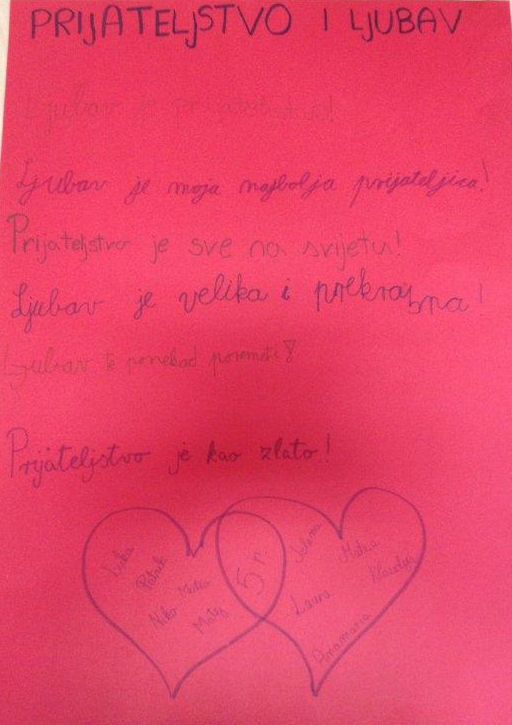 PRIJATELJSTVO I LJUBAV
Ljubav je prijateljstvo!
Ljubav je moja najbolja prijateljica!
Prijateljstvo je sve na svijetu!
Ljubav je velika i prekrasna!
Ljubav te ponekad poremeti!
Prijateljstvo je kao zlato!
Luka
Patrik
Niko
Matej
5r
Jelena
Matea
Klaudia
Laura
Anamaria